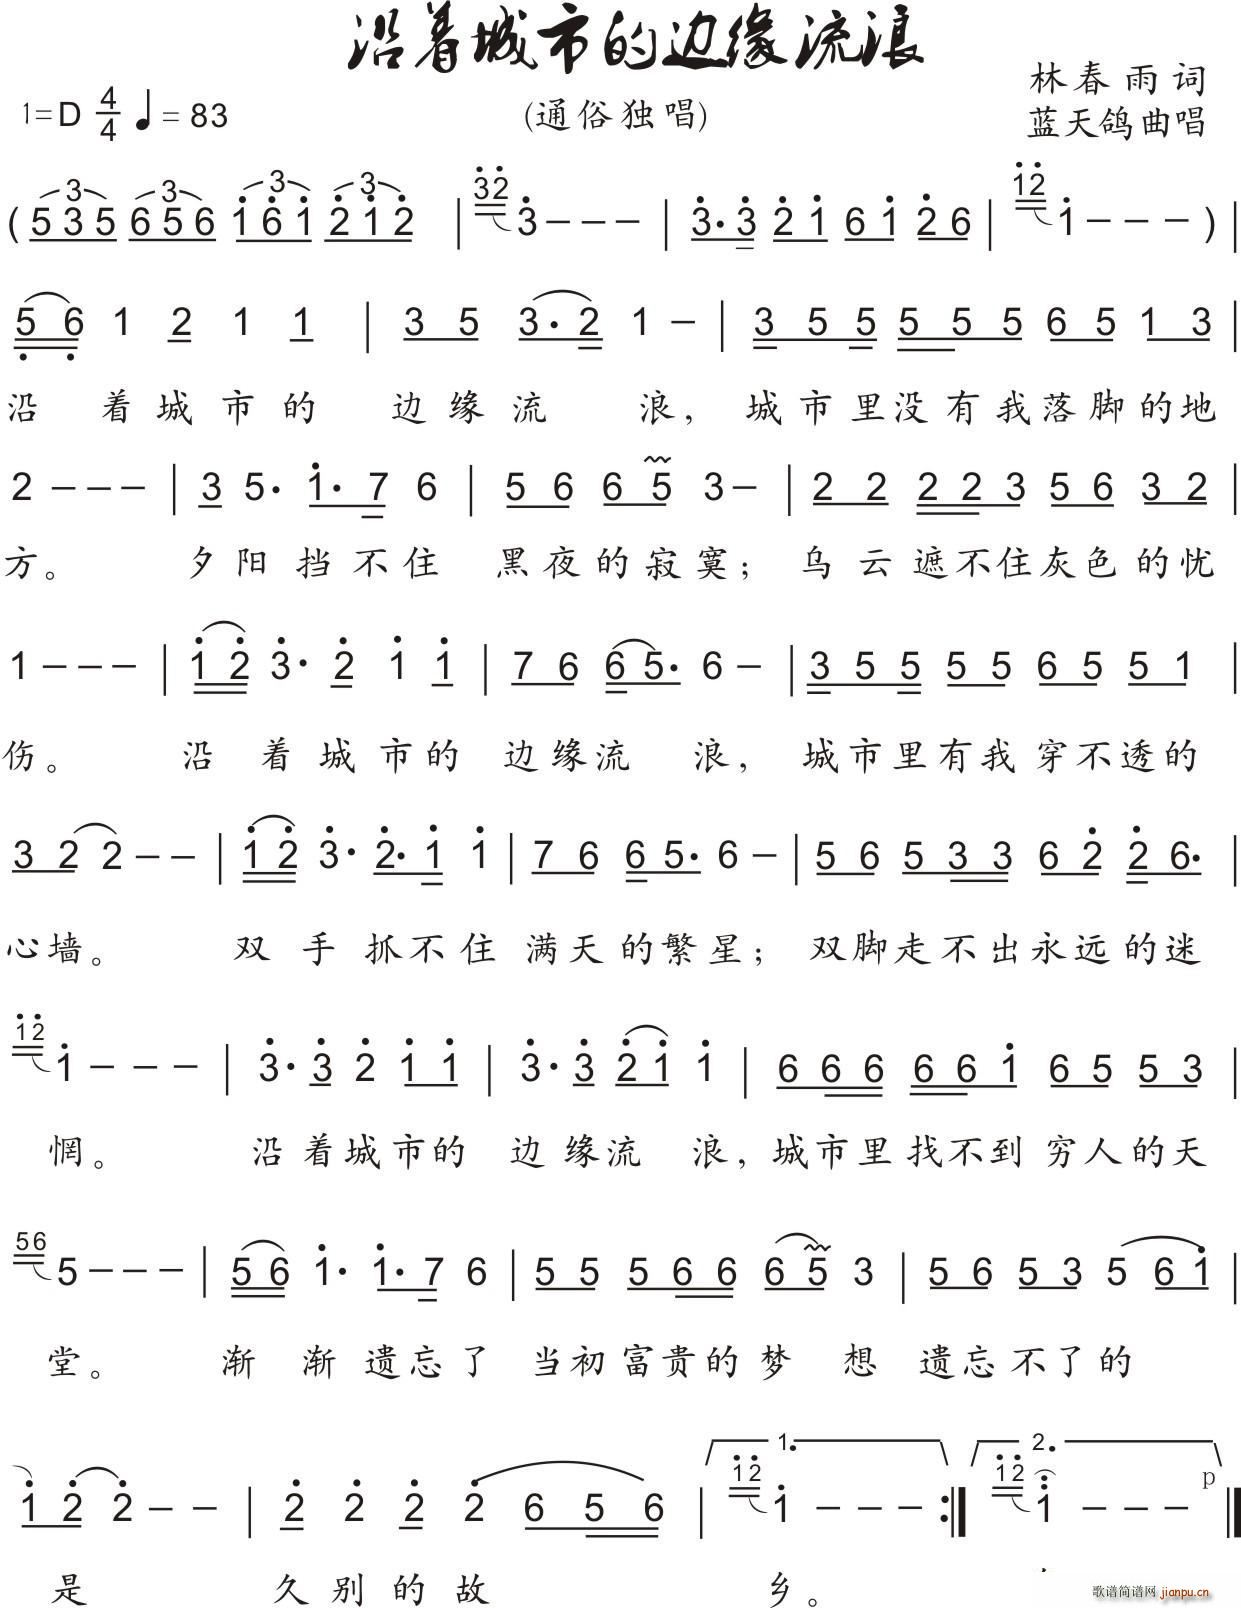 沿着城市的边缘流浪
1=D 4/4 ♩= 83
(通俗独唱)
林春雨词
蓝天鸽曲唱
( 5 3 5 6 5 6 1̇ 6 1̇ 2̇ 1̇ 2̇ | 3̇2̇ 3̇ – – – | 3̇· 3̇ 2̇ 1̇ 6 1̇ 2̇ 6 | 1̇2̇ 1̇ – – – ) |
5̣ 6̣ 1 2 1 1 | 3 5 3· 2 1 – | 3 5 5 5 5 5 6 5 1 3 |
沿 着城市的 边缘流 浪, 城市里没有我落脚的地
2 – – – | 3 5· 1̇· 7 6 | 5 6 6 5 3 – | 2 2 2 2 3 5 6 3 2 |
方。 夕阳挡不住 黑夜的寂寞; 乌云遮不住灰色的忧
1 – – – | 1̇ 2̇ 3̇· 2̇ 1̇ 1̇ | 7 6 6 5· 6 – | 3 5 5 5 5 6 5 5 1 |
伤。 沿着城市的 边缘流 浪, 城市里有我穿不透的
3 2 2 – – | 1̇ 2̇ 3̇· 2̇· 1̇ 1̇ | 7 6 6 5· 6 – | 5 6 5 3 3 6 2̇ 2̇ 6· |
心墙。 双手抓不住 满天的繁星; 双脚走不出永远的迷
1̇2̇ 1̇ – – – | 3̇· 3̇ 2̇ 1̇ 1̇ | 3̇· 3̇ 2̇ 1̇ 1̇ | 6 6 6 6 6 1̇ 6 5 5 3 |
惘。 沿着城市的 边缘流 浪, 城市里找不到穷人的天
56 5 – – – | 5 6 1̇· 1̇· 7 6 | 5 5 5 6 6 6 5 3 | 5 6 5 3 5 6 1̇ |
堂。 渐渐遗忘了 当初富贵的梦想 遗忘不了的
1̇ 2̇ 2̇ – – | 2̇ 2̇ 2̇ 2̇ 6 5 6 | 1. 1̇2̇ 1̇ – – – :| 2. 1̇2̇ 1̇ – – – p ||
是 久别的故 乡。
歌谱简谱网 jianpu.cn